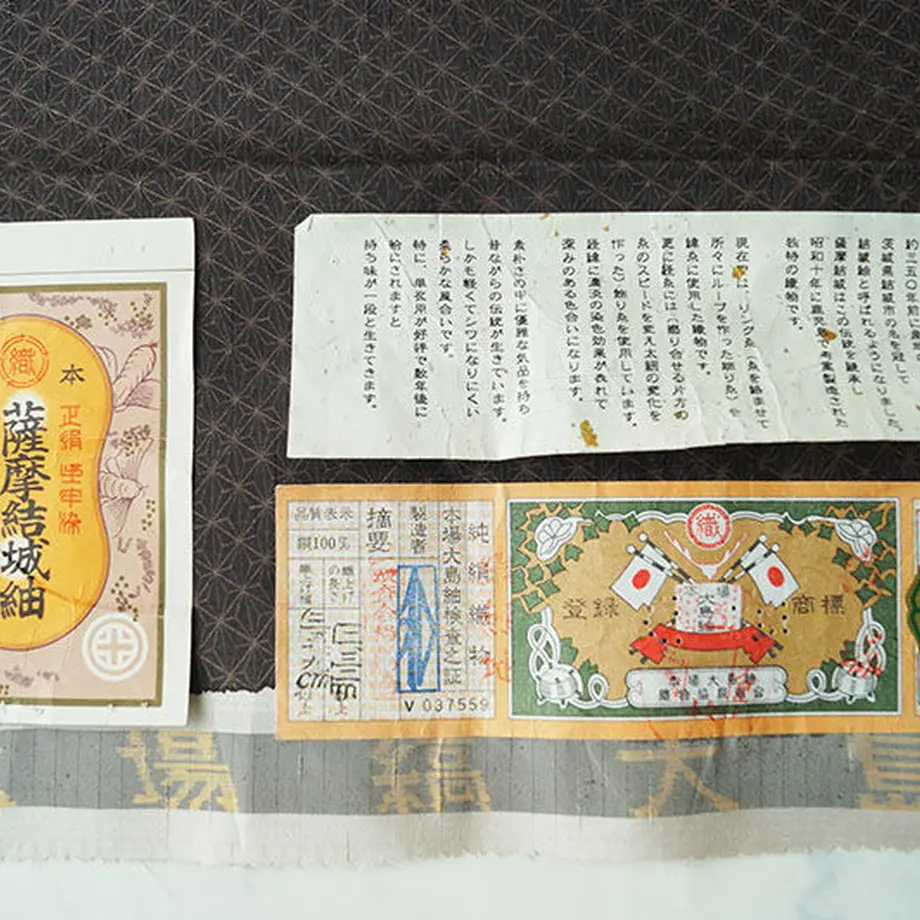 織
本
正絹
薩摩結城紬
約三五〇年前に
茨城県結城市の名を冠して
結城紬と呼ばれるようになりました。
薩摩結城はこの伝統を継承し、
昭和十年に鹿児島で考案製造された
独特の織物です。
現在では、リング糸(糸を絡ませて
所々にループを作った飾り糸)を
緯糸に使用した織物です。
更に経糸には(撚り合せる片方の
糸のスピードを変え太細の変化を
作った)飾り糸を使用しています。
経緯に濃淡の染色効果が表れて
深みのある色合いになります。
素朴さの中に優雅な気品を持ち
昔ながらの伝統が生きています。
しかも軽くてシワになりにくい
柔らかな風合いです。
特に、単衣用が好評で数年後に
袷にされますと
持ち味が一段と生きてきます。
純絹織物
本場大島紬検査之証
製造者
摘要
品質表示
絹100%
織上げの長さ
織上げ幅
V 037559
織
登録商標
本場大島
本場大島紬
織物協同組合
場絹大島